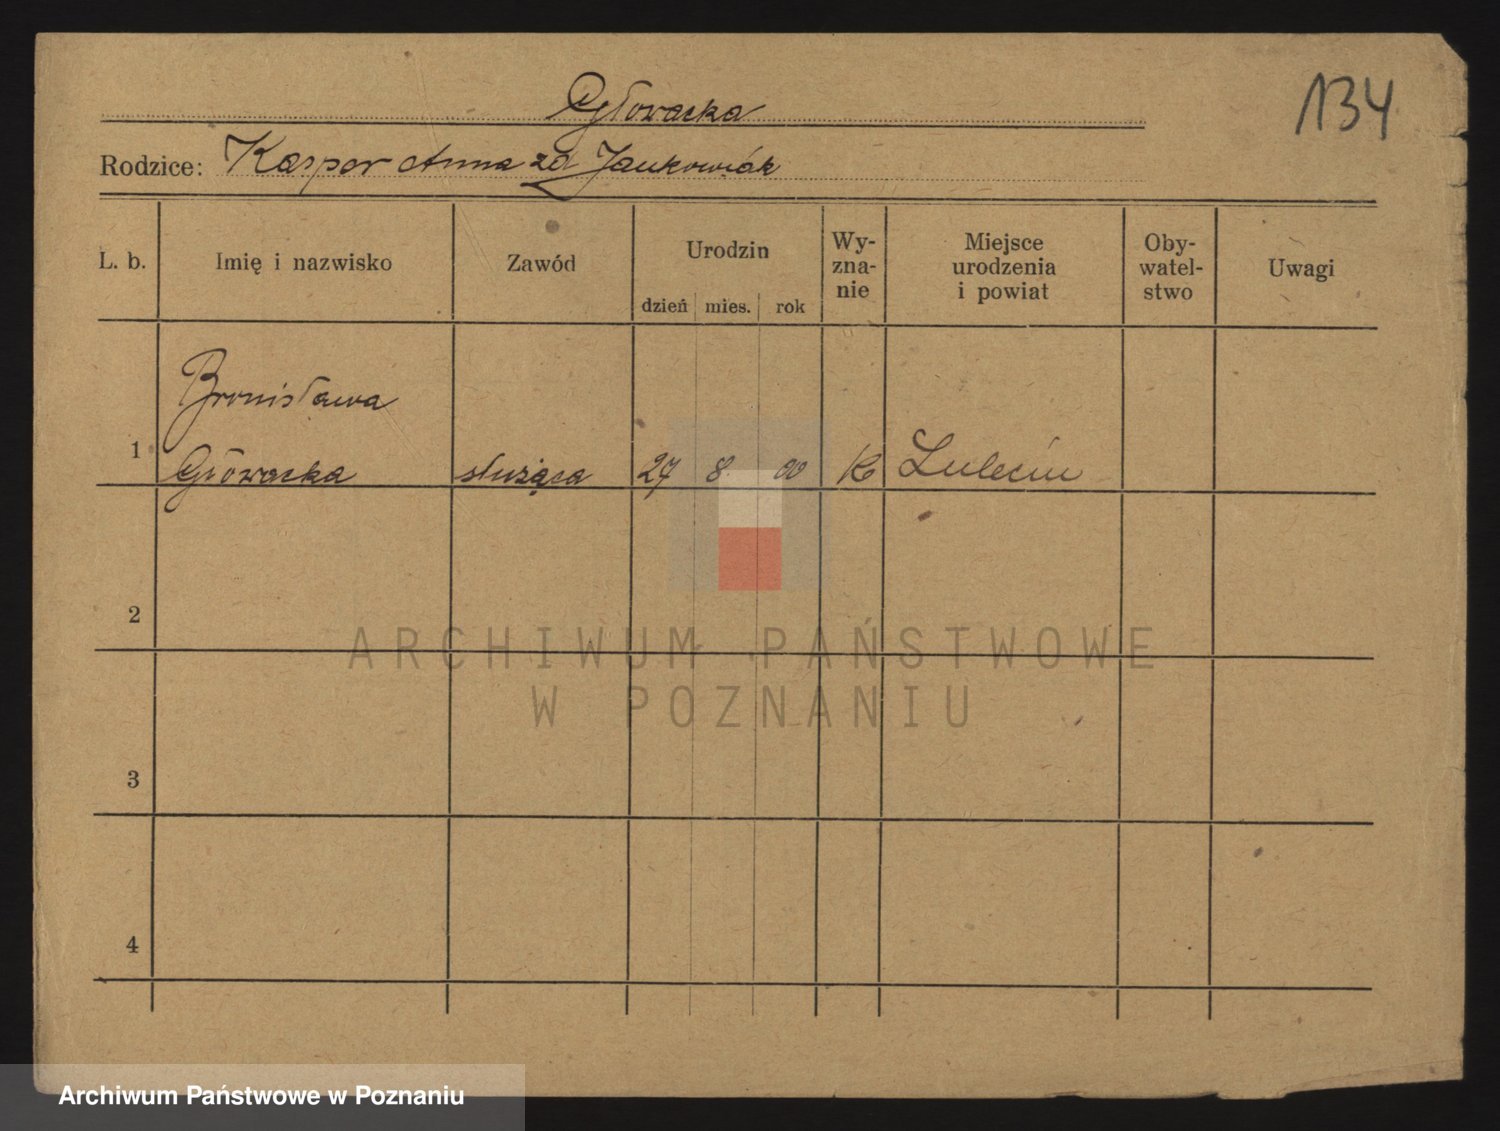 Głowacka
134
Rodzice: Kasper Anna zd Jankowiak
L. b.
Imię i nazwisko
Zawód
Urodzin
dzień mies. rok
Wy-
zna-
nie
Miejsce
urodzenia
i powiat
Oby-
watel-
stwo
Uwagi
Bronisława
1 Głowacka służąca 27 8. 00 K
2
3
4
ARCHIWUM PAŃSTWOWE
W POZNANIU
Archiwum Państwowe w Poznaniu